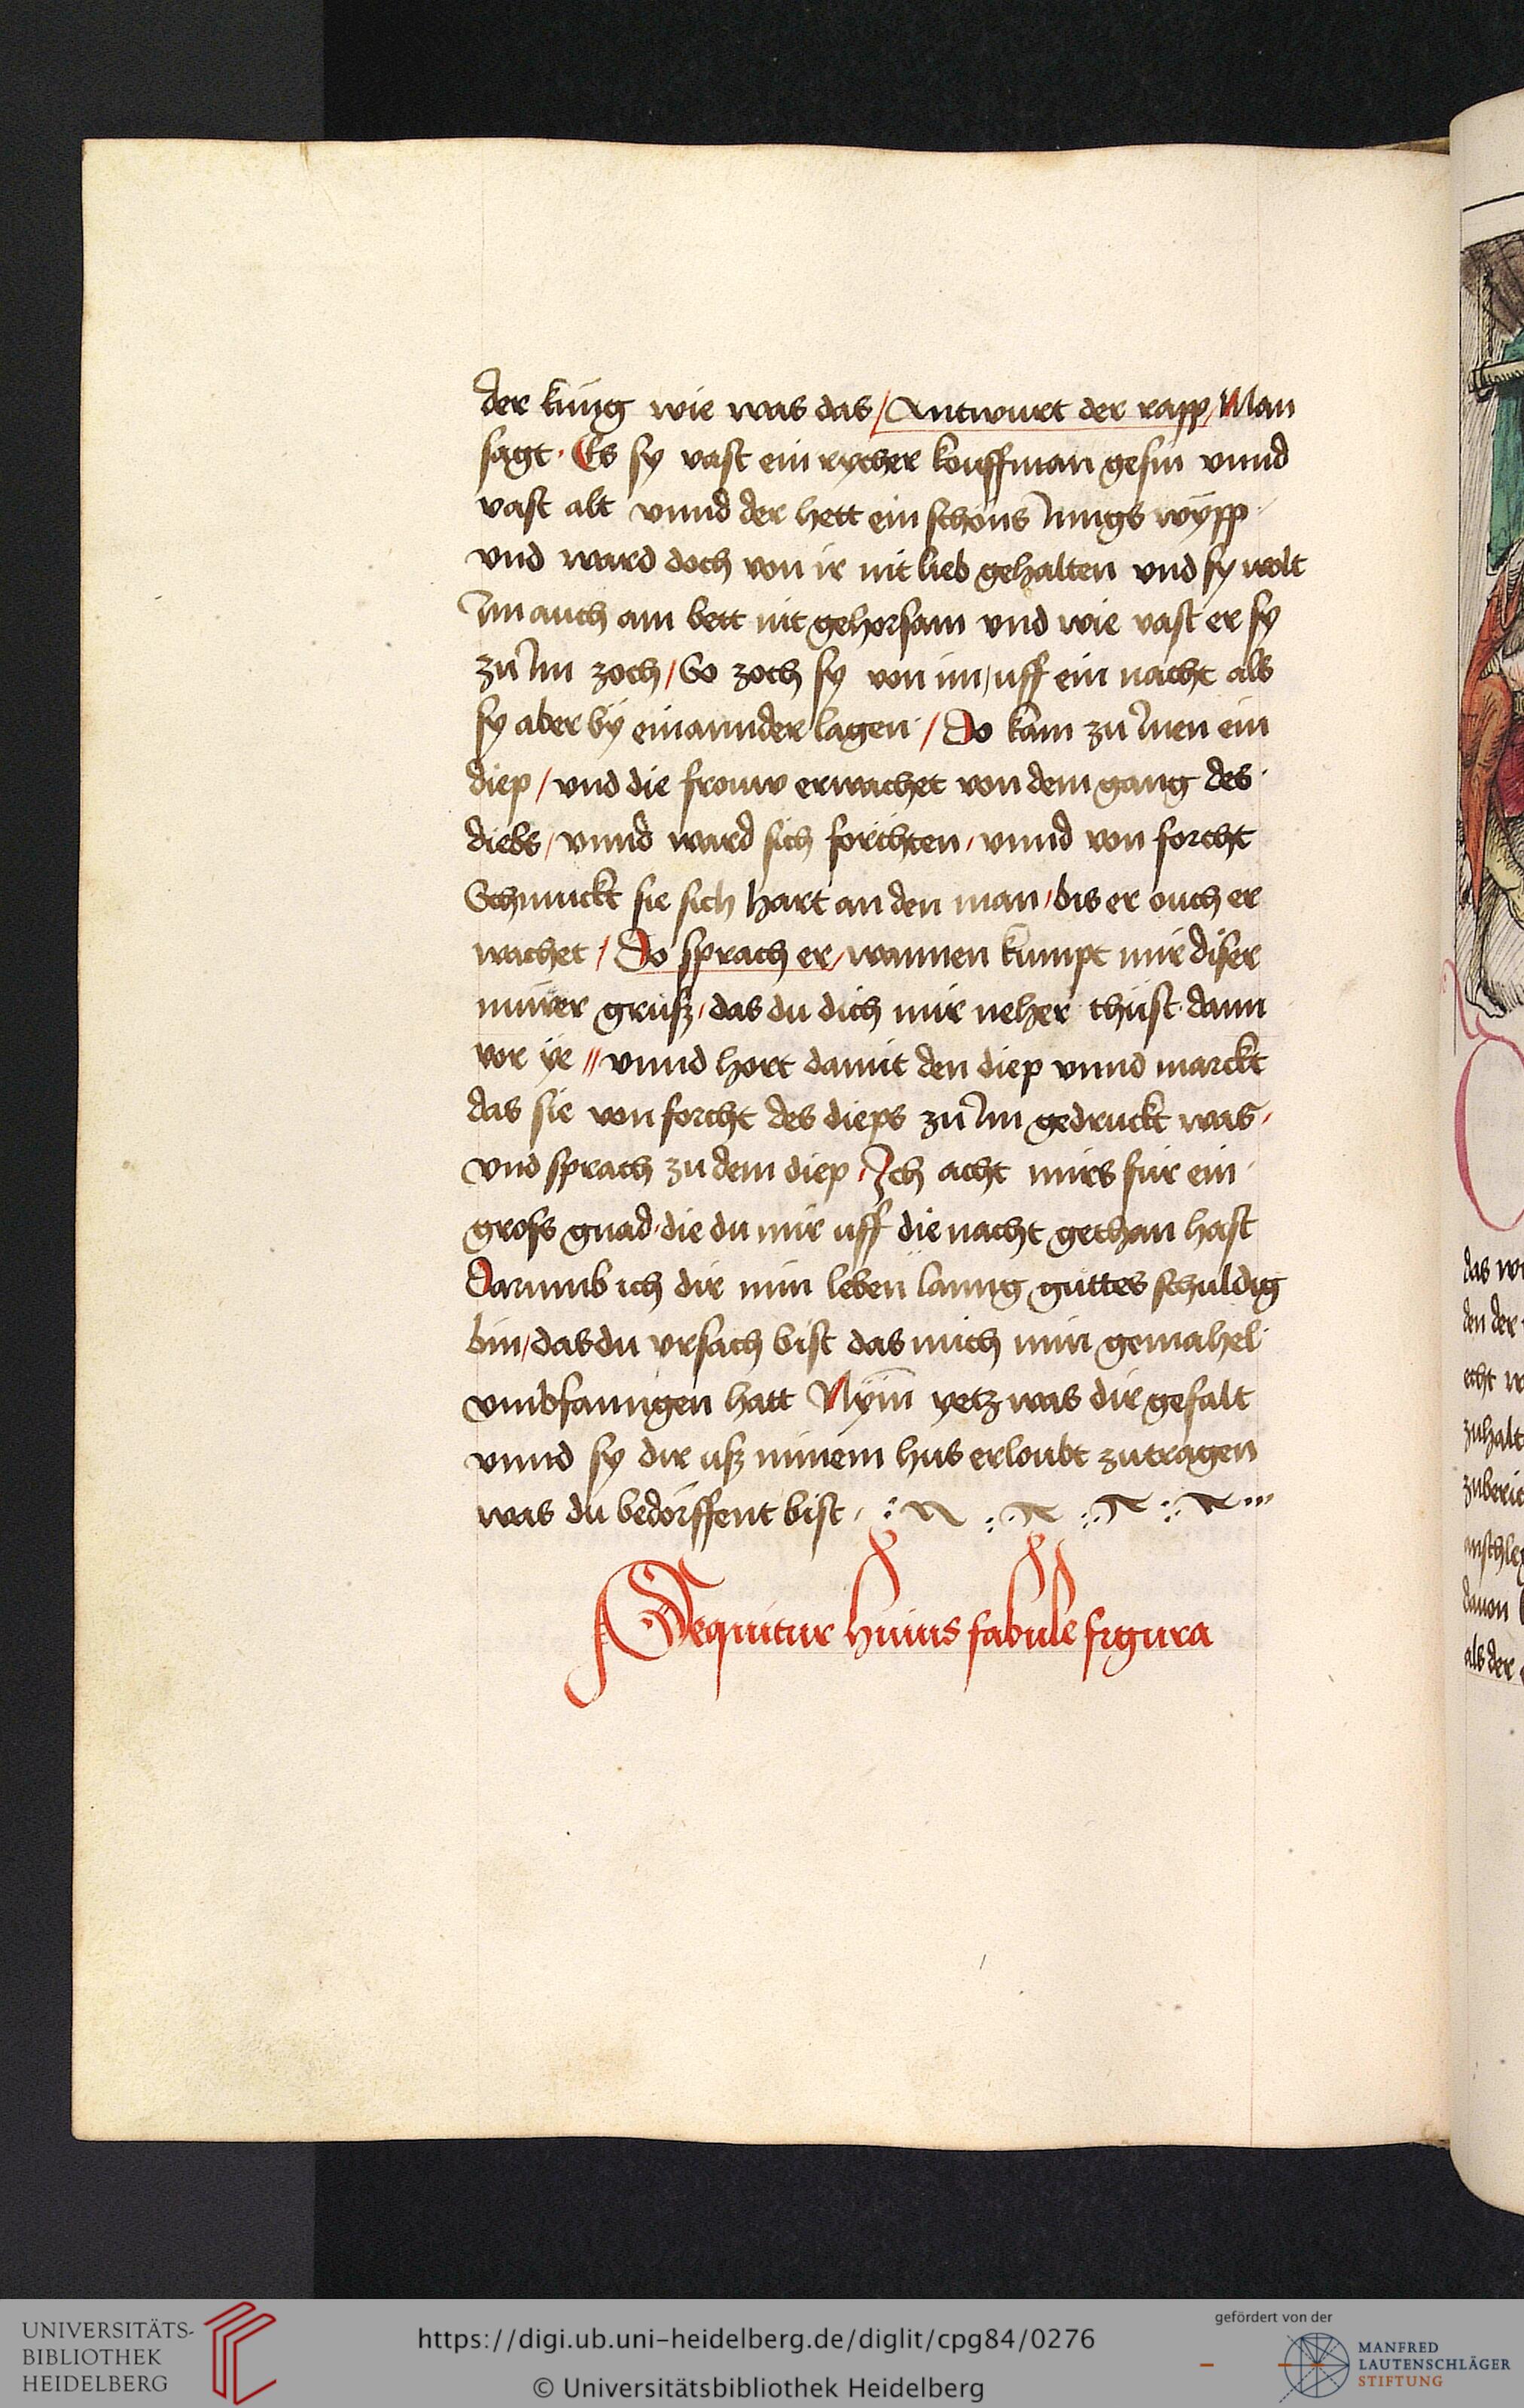 der kung wie was das / Antwurt der rapp / Man
sagt · Es sy vast ein rycher kouffman gesin vnnd
vast alt vnnd der hett ein schöns Jungs wypp
vnd ward doch von ir nit lieb gehalten vnd sy wolt
Jm auch am bett nit gehorsam vnd wie vast er sy
zu Jm zoch / So zoch sy von im / uff ein nacht als
sy aber by einannder lagen / Do kam zu Jnen ein
diep / vnd die frouw erwachet von dem gang des
diebs / vnnd ward sich förchten / vnnd von forcht
Schmuckt sie sich hart an den man / bis er ouch er
wachet / Do sprach er / wannen kumpt mir diser
nüwer grusz / das du dich mir neher thust dann
vor ye // vnnd hort damit den diep vnnd marckt
das sie von forcht des dieps zu Jm gedruckt was /
vnd sprach zu dem diep / Ich acht mirs für ein
gross gnad / die du mir uff die nacht gethan hast
Darumb ich dir min leben lanng guttes schuldig
bin / das du vrsach bist das mich min gemahel
vmbfanngen hatt Nym yetz was dir gefalt
vnnd sy dir usz minem hus erloubt zutragen
was du bedörffent bist
Sequitur huius fabule figura
das
den der
echt
zuhalt
als der
UNIVERSITÄTS-
BIBLIOTHEK
HEIDELBERG
https://digi.ub.uni-heidelberg.de/diglit/cpg84/0276
© Universitätsbibliothek Heidelberg
gefördert von der
MANFRED
LAUTENSCHLÄGER
STIFTUNG